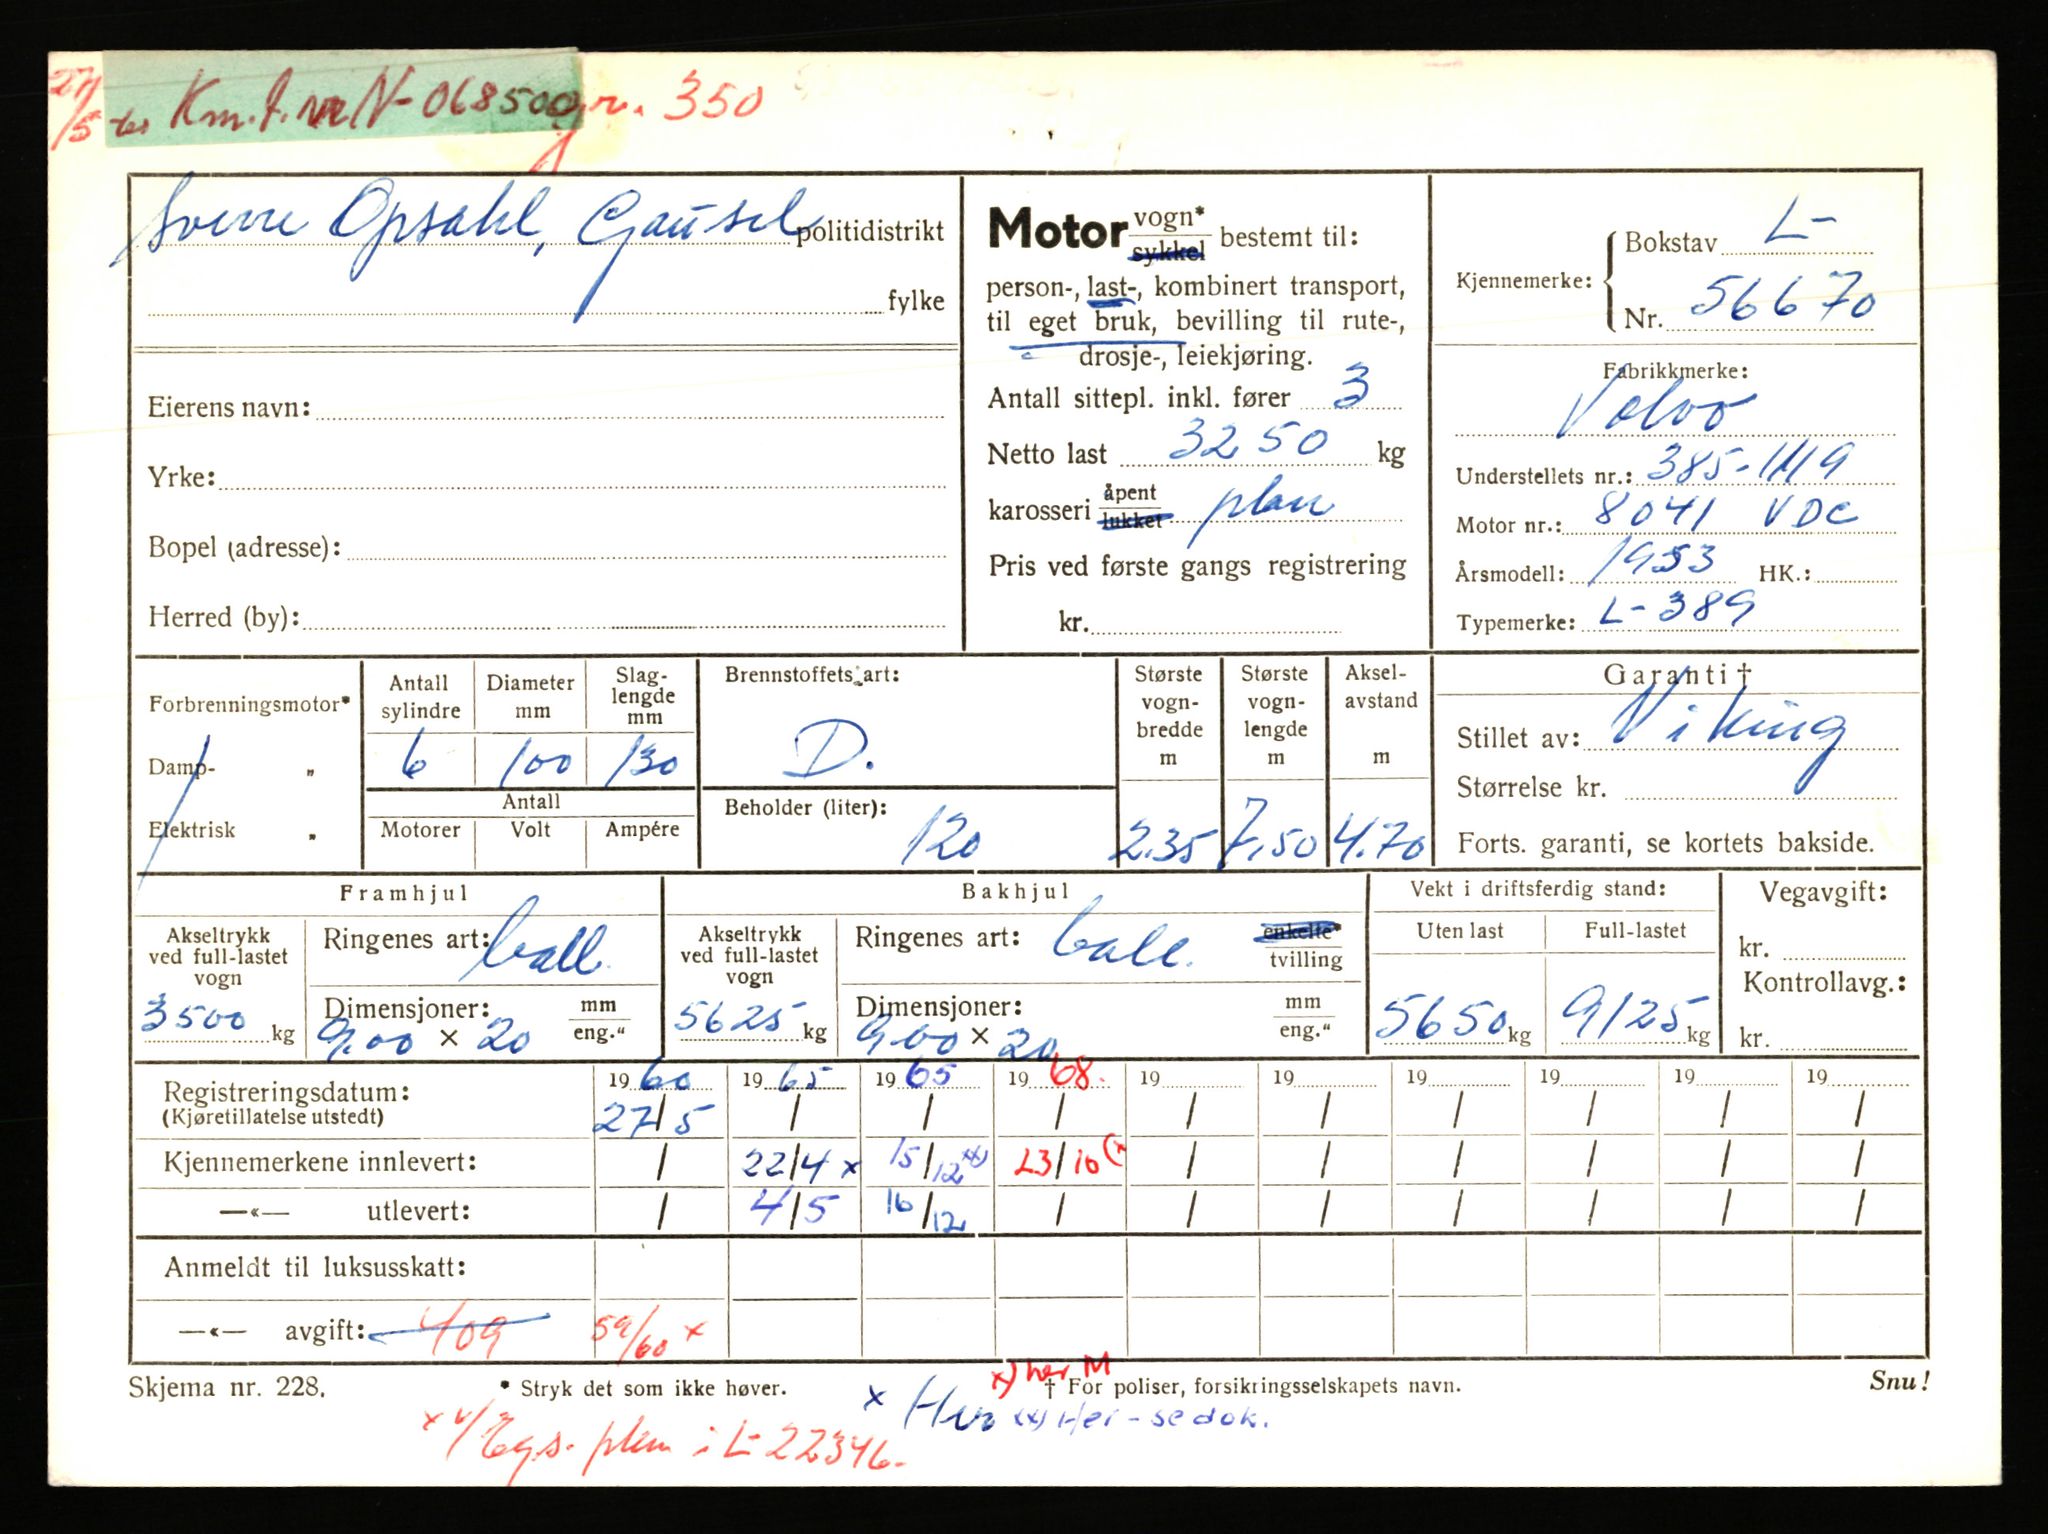 27/5
Km.t. nr N-068500 gr. 350
Sverre Opsahl, Gausel politidistrikt
fylke
Eierens navn:
Yrke:
Bopel (adresse):
Herred (by):
Motor vogn* sykkel bestemt til:
person-, last-, kombinert transport,
til eget bruk, bevilling til rute-,
drosje-, leiekjøring.
Antall sittepl. inkl. fører 3
Netto last 3250 kg
karosseri åpent lukket plan
Pris ved første gangs registrering
kr.
Kjennemerke: { Bokstav L-
Nr. 56670
Fabrikkmerke:
Volvo
Understellets nr.: 385-1119
Motor nr.: 8041 VDC
Årsmodell: 1953 HK.:
Typemerke: L-389
Forbrenningsmotor*
Damp- "
Elektrisk "
Antall sylindre Diameter mm Slag-lengde mm
6 100 130
Antall
Motorer Volt Ampére
Brennstoffets art:
D.
Beholder (liter):
120
Største vogn-bredde m Største vogn-lengde m Aksel-avstand m
2.35 7.50 4.70
Garanti †
Stillet av: Viking
Størrelse kr.
Forts. garanti, se kortets bakside.
Framhjul
Akseltrykk ved full-lastet vogn
3500 kg
Ringenes art: ball.
Dimensjoner: mm eng."
9.00 × 20
Bakhjul
Akseltrykk ved full-lastet vogn
5625 kg
Ringenes art: ball. enkelte* tvilling
Dimensjoner: mm eng."
900 × 20
Vekt i driftsferdig stand:
Uten last Full-lastet
5650 kg 9125 kg
Vegavgift:
kr.
Kontrollavg.:
kr.
Registreringsdatum: 1960 1965 1965 1968. 19 19 19 19 19 19
(Kjøretillatelse utstedt) 27/5 / / / / / / / / /
Kjennemerkene innlevert: / 22/4 x 15/12 xx) 23/10 (x / / / / / /
—«— utlevert: / 4/5 16/12 / / / / / / /
Anmeldt til luksusskatt:
—«— avgift: 409 59/60 x
Skjema nr. 228. * Stryk det som ikke høver. x) her M † For poliser, forsikringsselskapets navn. Snu!
x Her xx) Her - se dok.
x i L-22346.